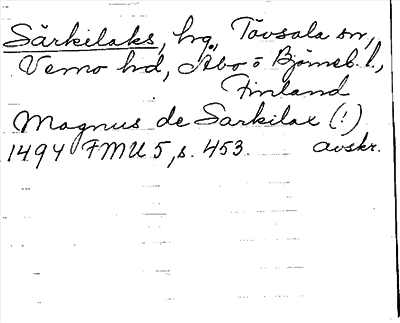 Särkilaks, hrg, Tövsala sn,
Vemo hd, Åbo o Björneb. l.,
Finland
Magnus de Sarkilax (!)
1494 FMU 5, s. 453. avskr.